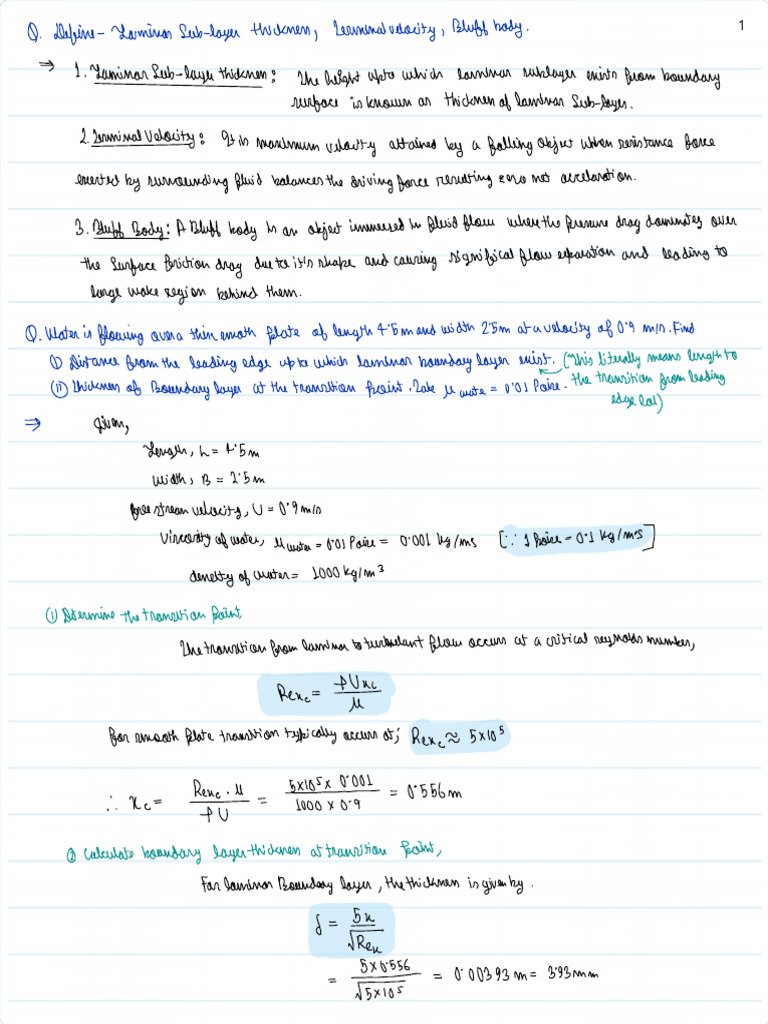 1
Q. Define - Laminar Sub-layer thickness, Terminal velocity, Bluff body.
⇒ 1. Laminar Sub-layer thickness: The height upto which laminar sublayer exists from boundary
surface is known as thickness of laminar Sub-layer.
2. Terminal Velocity: It is maximum velocity attained by a falling object when resistance force
exerted by surrounding fluid balances the driving force resulting zero net accelaration.
3. Bluff Body: A Bluff body is an object immersed in fluid flow where the pressure drag dominates over
the surface friction drag due to it's shape and causing significal flow separation and leading to
large wake region behind them.
Q. Water is flowing over a thin smoth plate of length 4.5m and width 2.5m at a velocity of 0.9 m/s. Find
(i) Distance from the leading edge upto which laminar boundary layer exist. (This literally means length to
(ii) Thickness of Boundary layer at the transition point. Take μ water = 0.01 Poise. the transition from leading
edge (xc))
⇒ Given,
Length, L = 4.5 m
Width, B = 2.5 m
free stream velocity, U = 0.9 m/s
Viscosity of water, μ water = 0.01 Poise = 0.001 kg/ms [∵ 1 poise = 0.1 kg/m-s]
density of water = 1000 kg/m³
① Determine the transition point,
The transition from laminar to turbulent flow occurs at a critical reynolds number,
Rexc = ρUxc / μ
For smooth plate transition typically occurs at; Rexc ≈ 5×10⁵
∴ xc = Rexc . μ / ρU = 5×10⁵ × 0.001 / 1000 × 0.9 = 0.556 m
② Calculate boundary layer thickness at transition point,
For laminar Boundary layer, the thickness is given by.
δ = 5x / √Rex
= 5×0.556 / √5×10⁵ = 0.00393 m = 3.93 mm